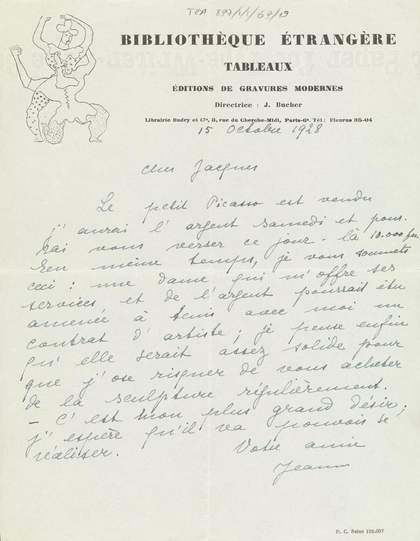 TGA 897/1/1/69/19
BIBLIOTHÈQUE ÉTRANGÈRE
TABLEAUX
ÉDITIONS DE GRAVURES MODERNES
Directrice : J. Bucher
Librairie Budry et Cie, 3, rue du Cherche-Midi, Paris-6e Tél: Fleurus 35-04
15 Octobre 1928
cher Jacques
Le petit Picasso est vendu
j'aurai l'argent samedi et pour-
rai vous verser ce jour-là 10.000 frs
En même temps, je vous soumets
ceci : une dame qui m'offre ses
services et de l'argent pourrait être
amenée à tenir avec moi un
contrat d'artiste ; je pense enfin
qu'elle serait assez solide pour
que j'ose risquer de vous acheter
de la sculpture régulièrement.
- C'est mon plus grand désir ;
j'espère qu'il va pouvoir se
réaliser.
Votre amie
Jeanne